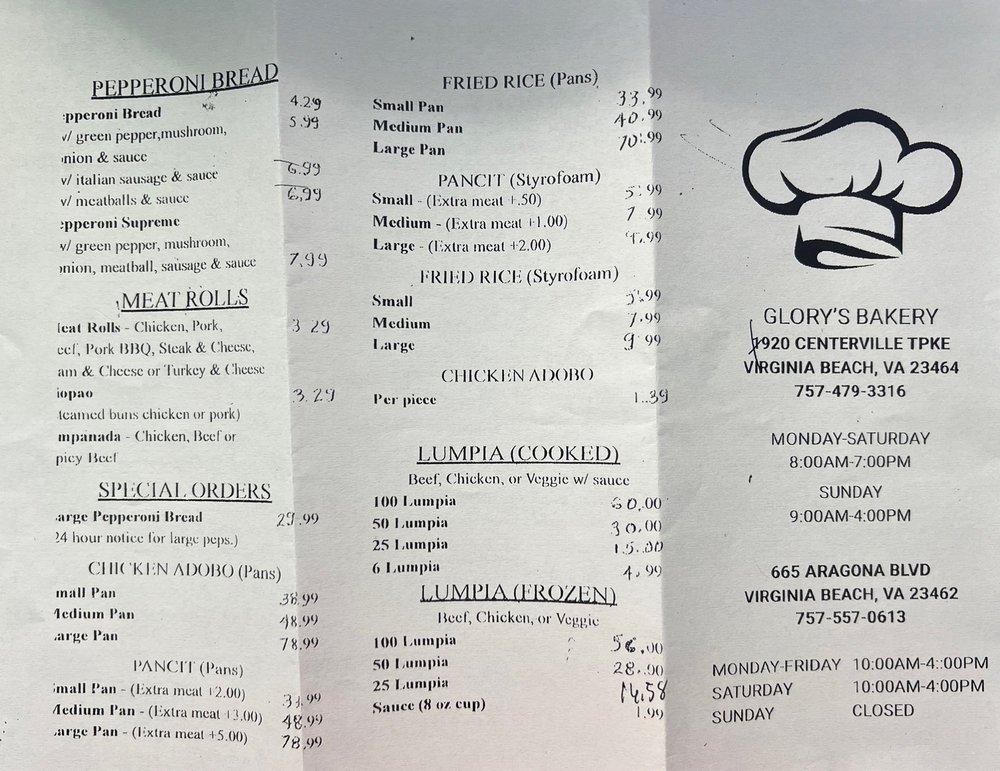 PEPPERONI BREAD
epperoni Bread 4.29
w/ green pepper,mushroom, 5.99
onion & sauce
w/ italian sausage & sauce 6.99
w/ meatballs & sauce 6,99
epperoni Supreme
w/ green pepper, mushroom,
onion, meatball, sausage & sauce 7.99
MEAT ROLLS
Meat Rolls - Chicken, Pork, 3 29
eef, Pork BBQ, Steak & Cheese,
am & Cheese or Turkey & Cheese
iopao 3.29
teamed buns chicken or pork)
mpanada - Chicken, Beef or
picy Beef
SPECIAL ORDERS
arge Pepperoni Bread 29.99
24 hour notice for large peps.)
CHICKEN ADOBO (Pans)
mall Pan 38.99
Medium Pan 48.99
arge Pan 78.99
PANCIT (Pans)
mall Pan - (Extra meat +2.00)
Medium Pan - (Extra meat +3.00) 48.99
arge Pan - (Extra meat +5.00) 78.99
FRIED RICE (Pans)
Small Pan 33.99
Medium Pan 40.99
Large Pan 70.99
PANCIT (Styrofoam)
Small - (Extra meat +.50) 5.99
Medium - (Extra meat +1.00) 7 99
Large - (Extra meat +2.00)
FRIED RICE (Styrofoam)
Small 5.99
Medium 7.99
Large 9 99
CHICKEN ADOBO
Per piece 1.39
LUMPIA (COOKED)
Beef, Chicken, or Veggie w/ sauce
100 Lumpia 60.00
50 Lumpia 30.00
25 Lumpia 15.00
6 Lumpia 4.99
LUMPIA (FROZEN)
Beef, Chicken, or Veggie
100 Lumpia 56.00
50 Lumpia 28.00
25 Lumpia 14.58
Sauce (8 oz cup) 1.99
GLORY'S BAKERY
1920 CENTERVILLE TPKE
VIRGINIA BEACH, VA 23464
757-479-3316
MONDAY-SATURDAY
8:00AM-7:00PM
SUNDAY
9:00AM-4:00PM
665 ARAGONA BLVD
VIRGINIA BEACH, VA 23462
757-557-0613
MONDAY-FRIDAY 10:00AM-4::00PM
SATURDAY 10:00AM-4:00PM
SUNDAY CLOSED